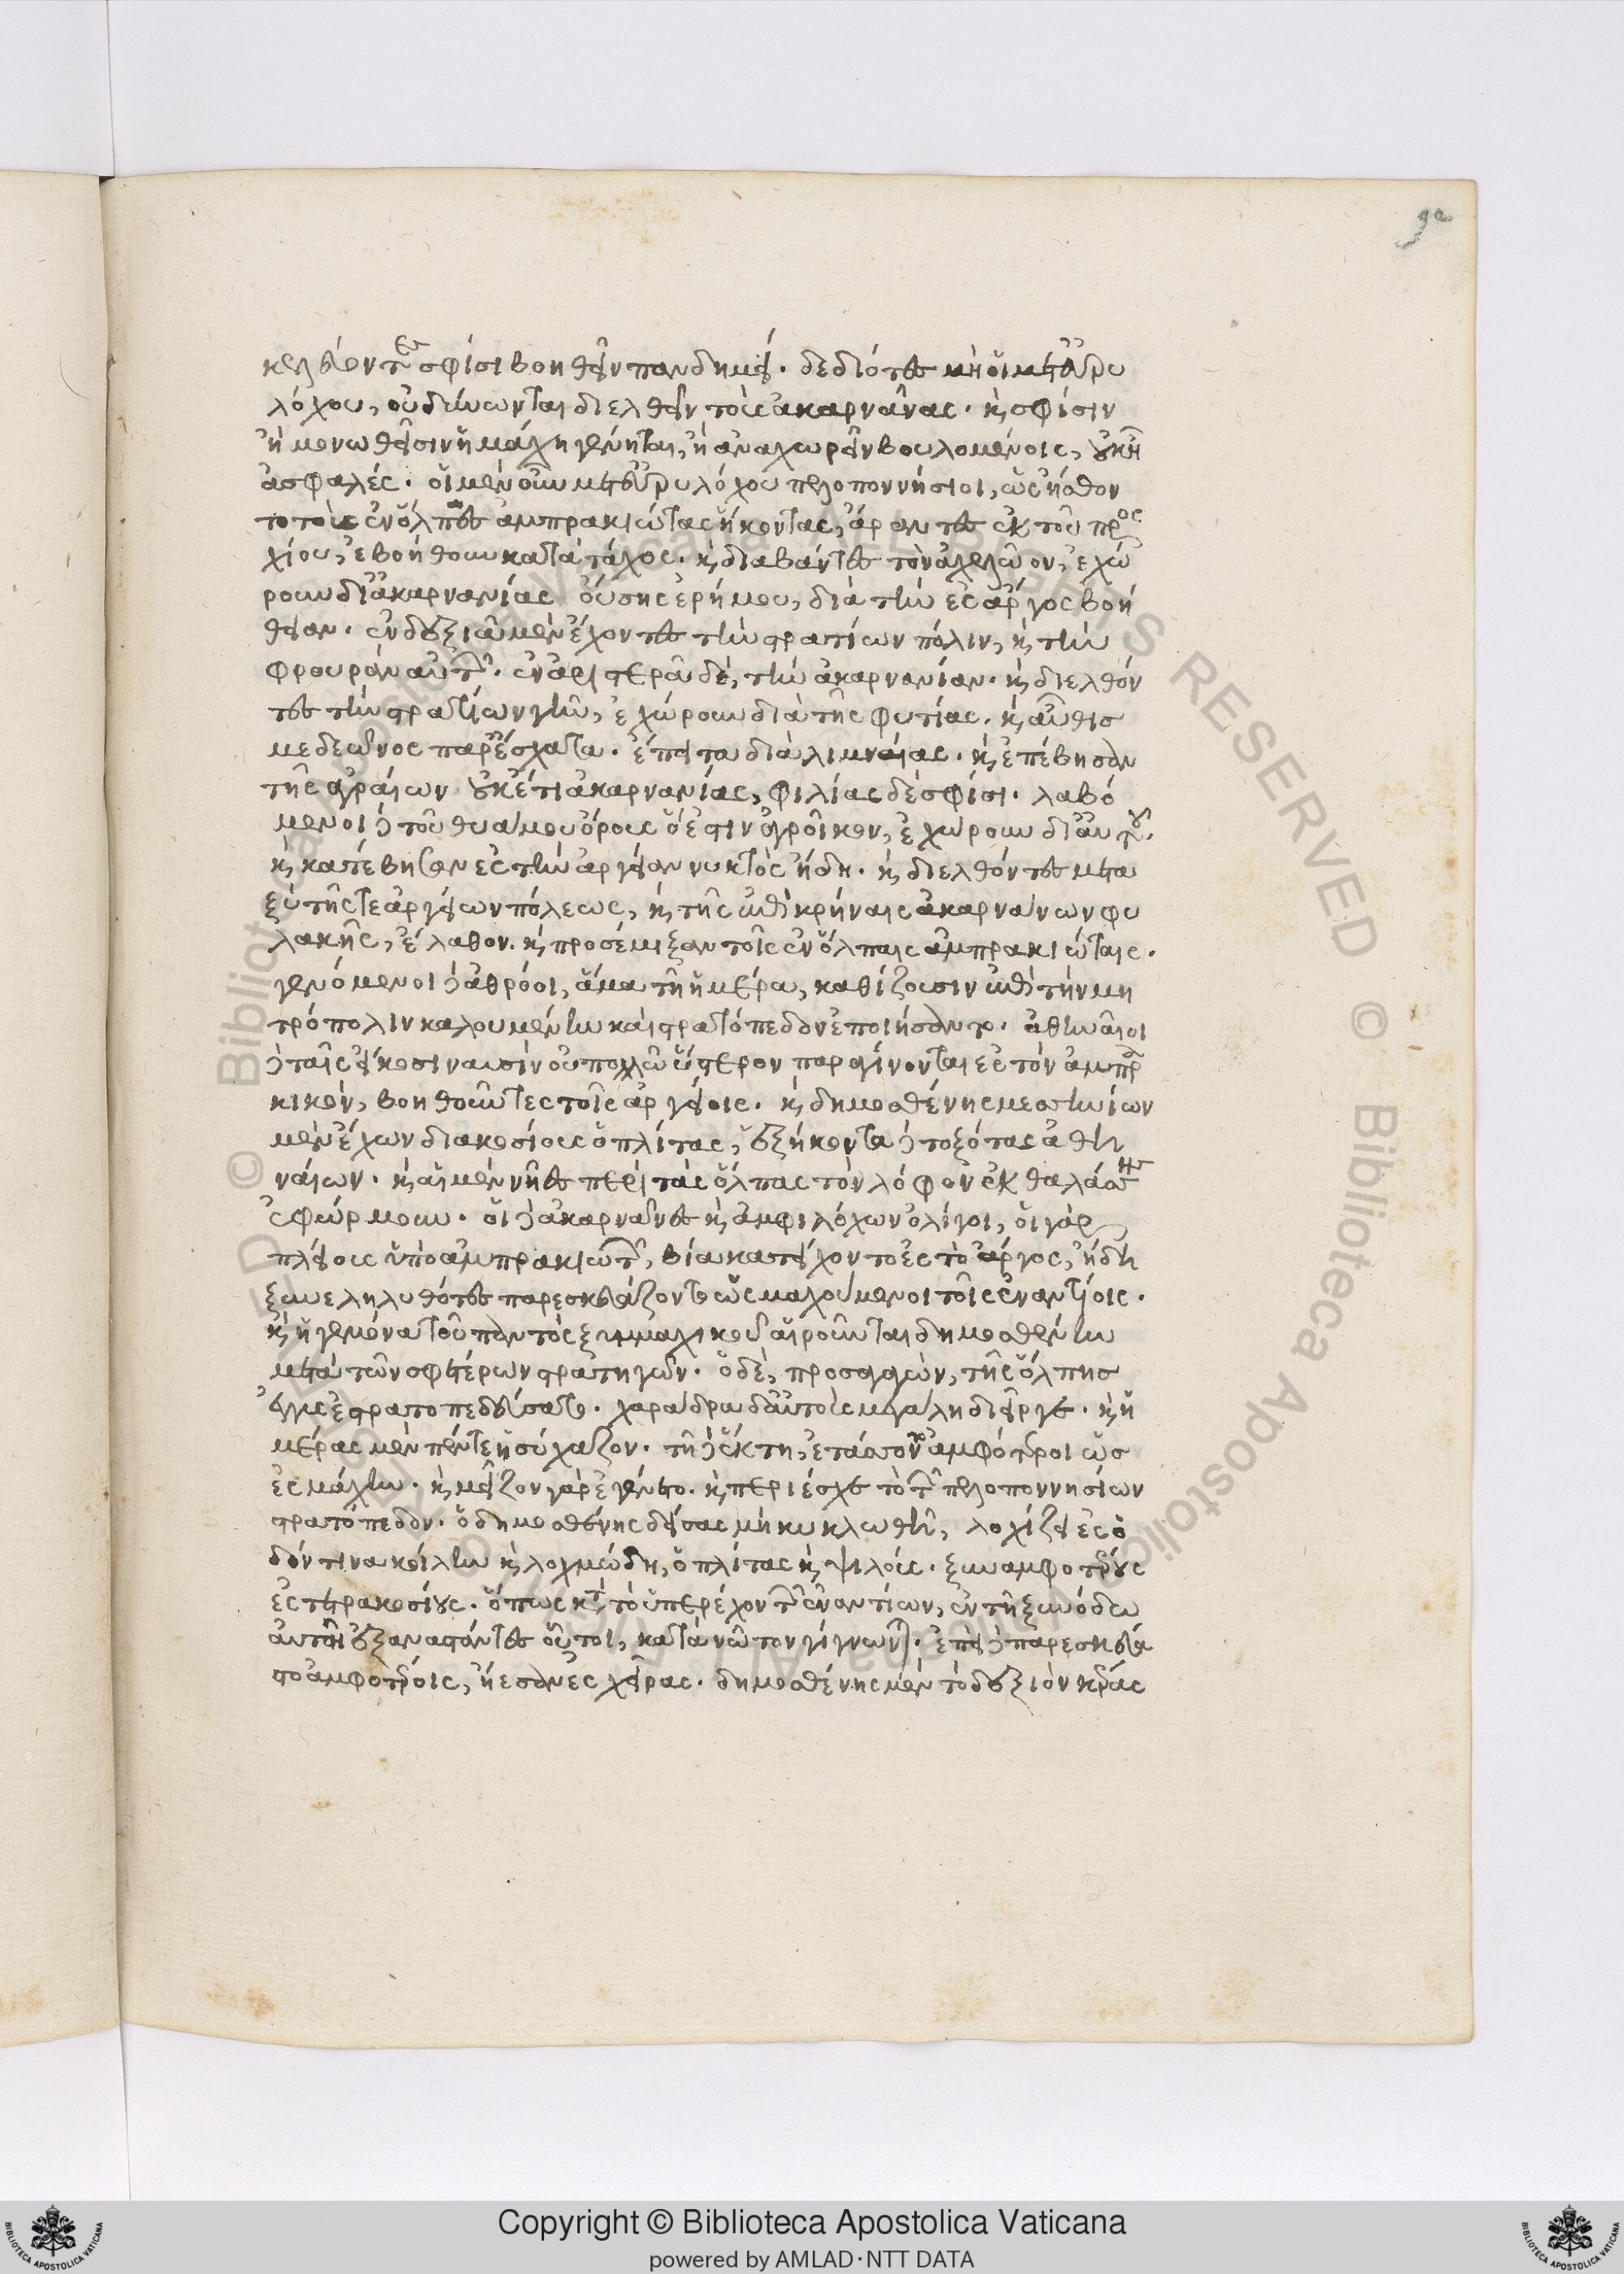 92
κελεύοντες σφίσι βοηθεῖν πανδημεί· δεδιότες μὴ οἱ μετ' εὐρυ
λόχου, οὐ δύνωνται διελθεῖν τοὺς ἀκαρνᾶνας· καὶ σφίσιν
ἢ μονωθεῖσιν ἡ μάχη γένηται, ἢ ἀναχωρεῖν βουλομένοις, οὐκ ἦ
ἀσφαλές· οἱ μὲν οὖν μετ' εὐρυλόχου πελοποννήσιοι, ὡς ἤσθον
το τοὺς ἐν ὄλπαις ἀμπρακιώτας ἥκοντας, ἄραντες ἐκ τοῦ προσ
χίου, ἐβοήθουν κατὰ τάχος· καὶ διαβάντες τὸν ἀχελῶον, ἐχώ
ρουν δι' ἀκαρνανίας οὔσης ἐρήμου, διὰ τὴν ἐς ἄργος βοή
θειαν· ἐν δεξιᾶ μὲν ἔχοντες τὴν στρατίων πόλιν, καὶ τὴν
φρουρὰν αὐτῶν· ἐν ἀριστερᾶ δὲ, τὴν ἀκαρνανίαν· καὶ διελθόν
τες τὴν στρατίων γῆν, ἐχώρουν διὰ τῆς φυτίας· καὶ αὖθις
μεδεῶνος παρ' ἔσχατα· ἔπειτα διὰ λιμναίας· καὶ ἐπέβησαν
τῆς ἀγραίων οὐκέτι ἀκαρνανίας, φιλίας δὲ σφίσι· λαβό
μενοι δὲ τοῦ θυάμου ὄρους ὅ ἐστιν ἀγροῖκον, ἐχώρουν δι' αὐτοῦ·
καὶ κατέβησαν ἐς τὴν ἀργείαν νυκτὸς ἤδη· καὶ διελθόντες μετα
ξὺ τῆς τε ἀργείων πόλεως, καὶ τῆς ἐπὶ κρήναις ἀκαρνάνων φυ
λακῆς, ἔλαθον· καὶ προσέμιξαν τοῖς ἐν ὄλπαις ἀμπρακιώταις·
γενόμενοι δὲ ἀθρόοι, ἅμα τῆ ἡμέρα, καθίζουσιν ἐπὶ τὴν μη
τρόπολιν καλουμένην καὶ στρατόπεδον ἐποιήσαντο· ἀθηναῖοι
δὲ ταῖς εἴκοσι ναυσὶν οὐ πολλῶ ὕστερον παραγίνονται ἐς τὸν ἀμπρα
κικὸν, βοηθοῦντες τοῖς ἀργείοις· καὶ δημοσθένης μεσσηνίων
μὲν ἔχων διακοσίους ὁπλίτας, ἑξήκοντα δὲ τοξότας ἀθη
ναίων· καὶ αἱ μὲν νῆες περὶ τὰς ὄλπας τὸν λόφον ἐκ θαλάσσης
ἐφώρμουν· οἱ δὲ ἀκαρνᾶνες καὶ ἀμφιλόχων ὀλίγοι, οἱ γὰρ
πλείους ὑπὸ ἀμπρακιωτῶν, βία κατείχοντο ἐς τὸ ἄργος, ἤδη
ξυνεληλυθότες παρεσκευάζοντο ὡς μαχούμενοι τοῖς ἐναντίοις·
καὶ ἡγεμόνα τοῦ παντὸς ξυμμαχικοῦ αἱροῦνται δημοσθένην
μετὰ τῶν σφετέρων στρατηγῶν· ὁ δὲ, προσαγαγὼν, τῆς ὄλπης
ἐγγὺς ἐστρατοπεδεύσατο· χαράδρα δ' αὐτοὺς μεγάλη διεῖργε· καὶ ἡ
μέρας μὲν πέντε ἡσύχαζον· τῆ δὲ ἕκτη, ἐτάσσοντο ἀμφότεροι ὡς
ἐς μάχην· καὶ μεῖζον γὰρ ἐγένετο· καὶ περιέσχε τὸ τῶν πελοποννησίων
στρατόπεδον· ὁ δημοσθένης δείσας μὴ κυκλωθῆ, λοχίζει ἐς ὁ
δόν τινα κοίλην καὶ λοχμώδη, ὁπλίτας καὶ ψιλοὺς· ξυναμφοτέρους
ἐς τετρακοσίους· ὅπως κατὰ τὸ ὑπερέχον τῶν ἐναντίων, ἐν τῆ ξυνόδω
αὐτῆ ἐξαναστάντες οὗτοι, κατὰ νῶτον γίγνωνται· ἐπεὶ δὲ παρεσκεύα
στο ἀμφοτέροις, ἤεσαν ἐς χεῖρας· δημοσθένης μὲν τὸ δεξιὸν κέρας
Copyright © Biblioteca Apostolica Vaticana
powered by AMLAD·NTT DATA